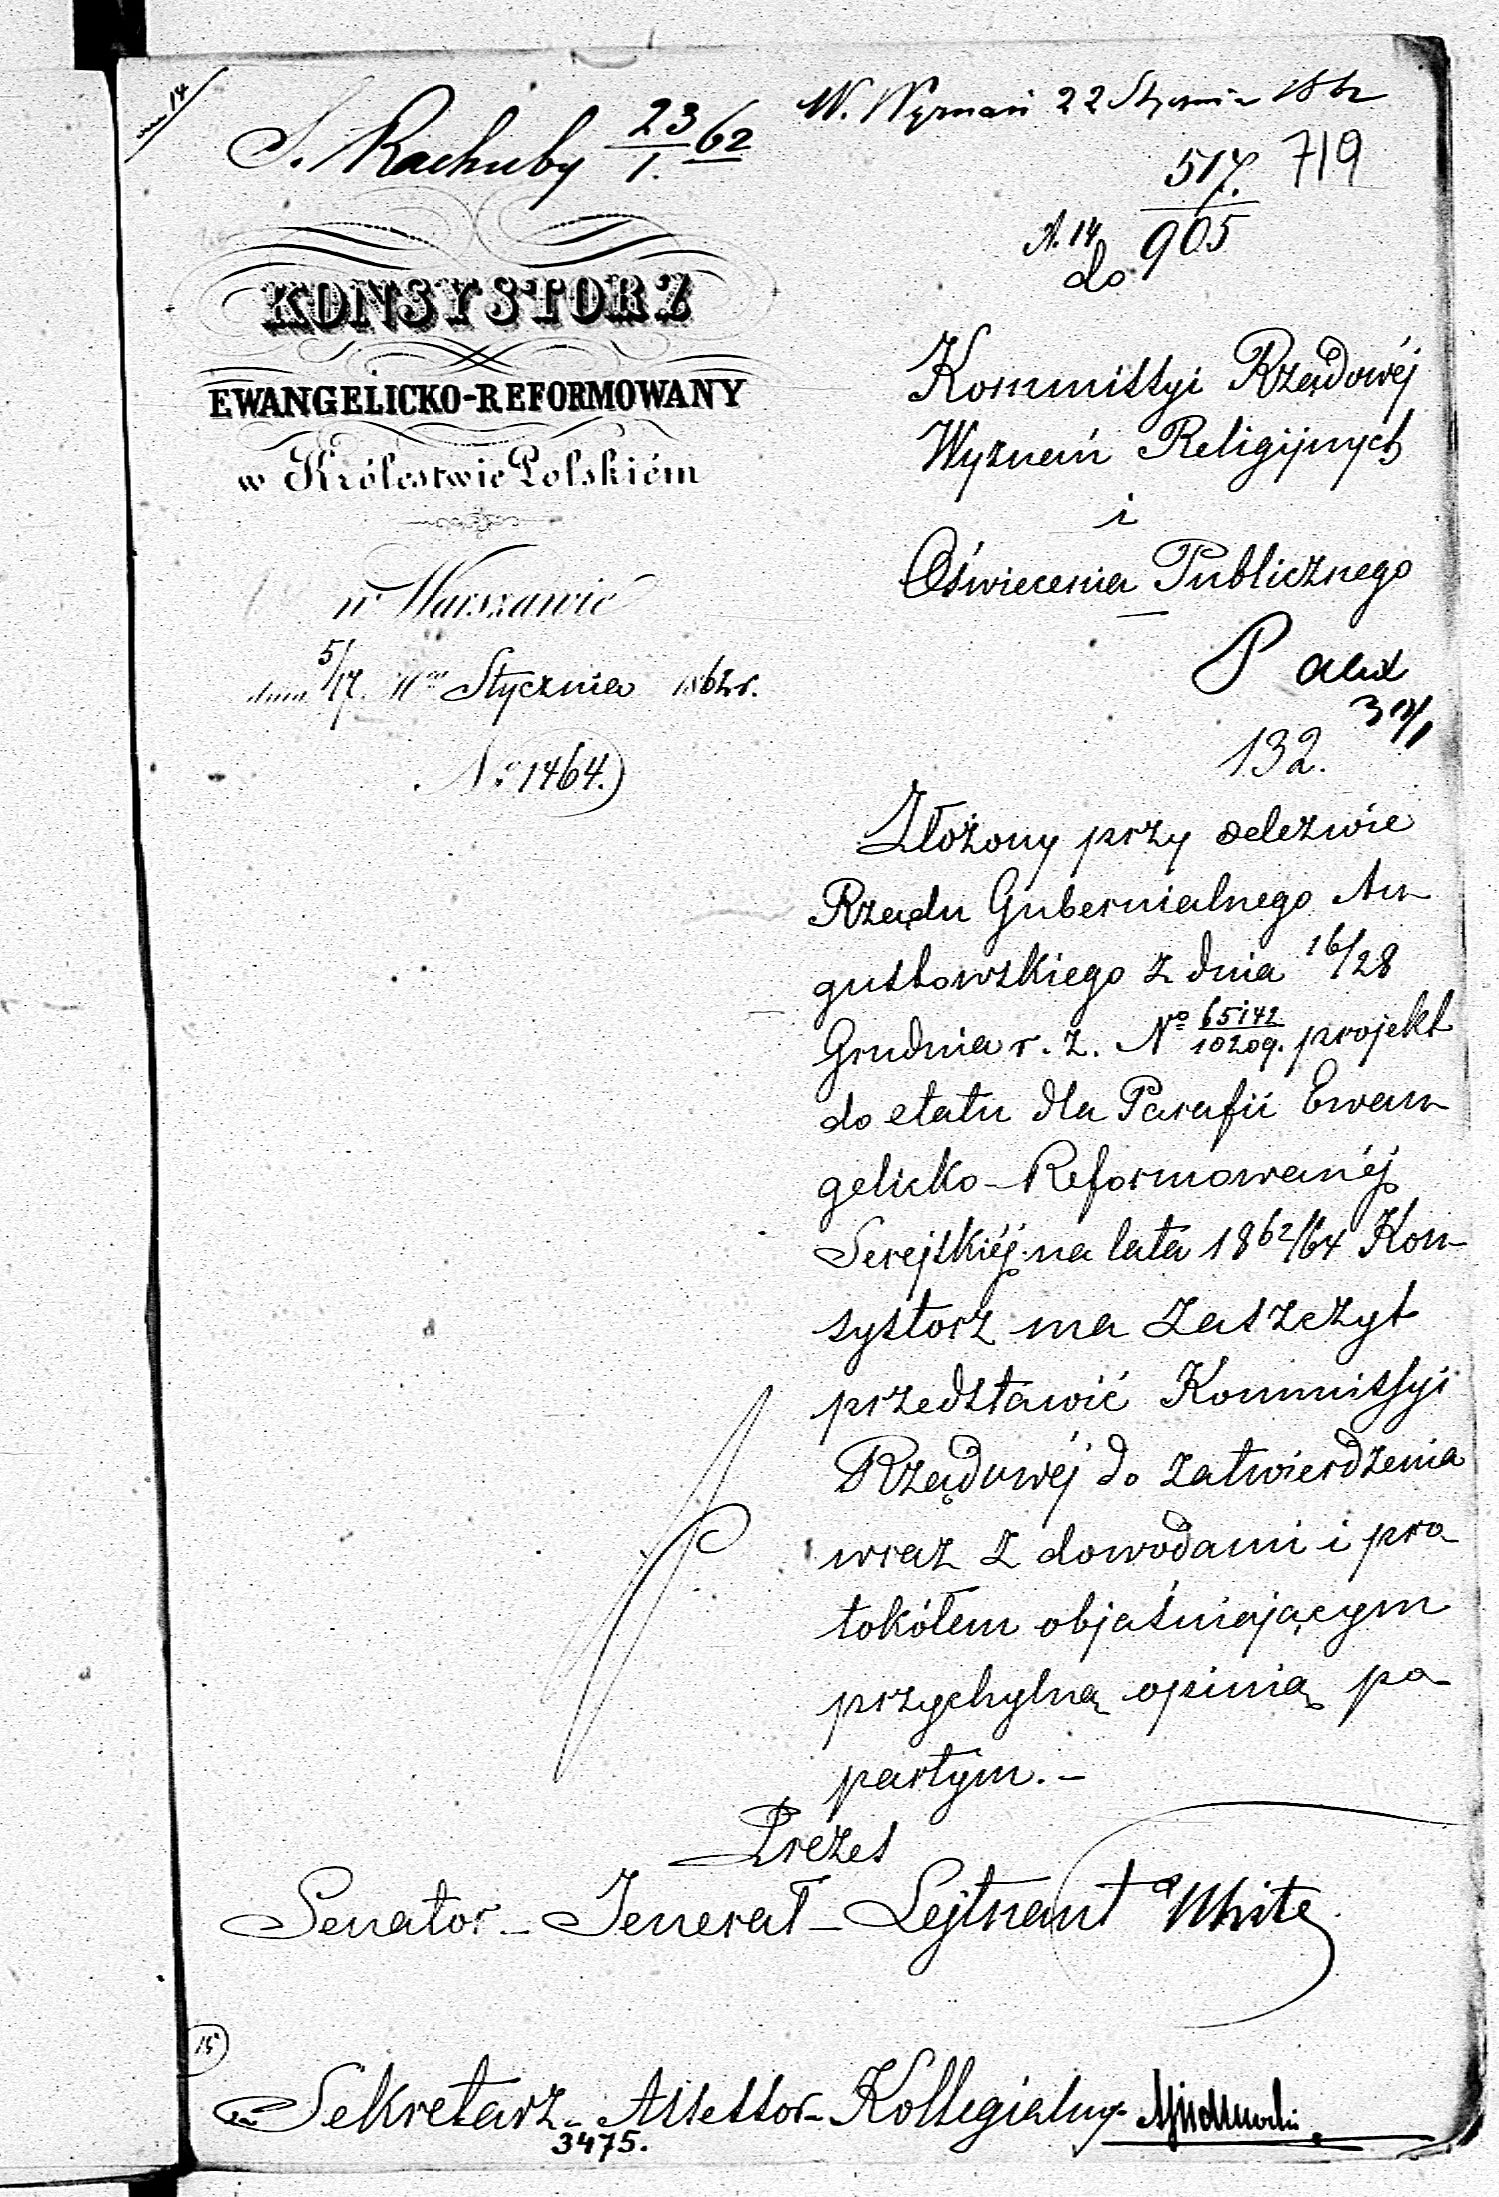 14
S. Rachuby 23/1. 62
W. Wyznań 22 Stycznia 1862
517. 719
905
N. 14
do
KONSYSTORZ
EWANGELICKO-REFORMOWANY
w Królestwie Polskiém
w Warszawie
dnia 5/17. Mca Stycznia 1862 r.
No 1464.)
Kommissyi Rządowéj
Wyznań Religijnych
i
Oświecenia Publicznego
P
132.
Złożony przy odezwie
Rządu Gubernialnego Au-
gustowskiego z dnia 16/28
Grudnia r. z. No 65142/10209. projekt
do etatu dla Parafii Ewan-
gelicko-Reformowanéj
Serejskiéj na lata 1862/64 Kon-
systorz ma zaszczyt
przedstawić Kommissyi
Rządowéj do zatwierdzenia
wraz z dowodami i pro-
tokółem objaśniającym
przychylną opinią po-
partym.-
Prezes
Senator - Jenerał - Lejtnant White
15
Sekretarz - Assessor - Kollegialny
3475.